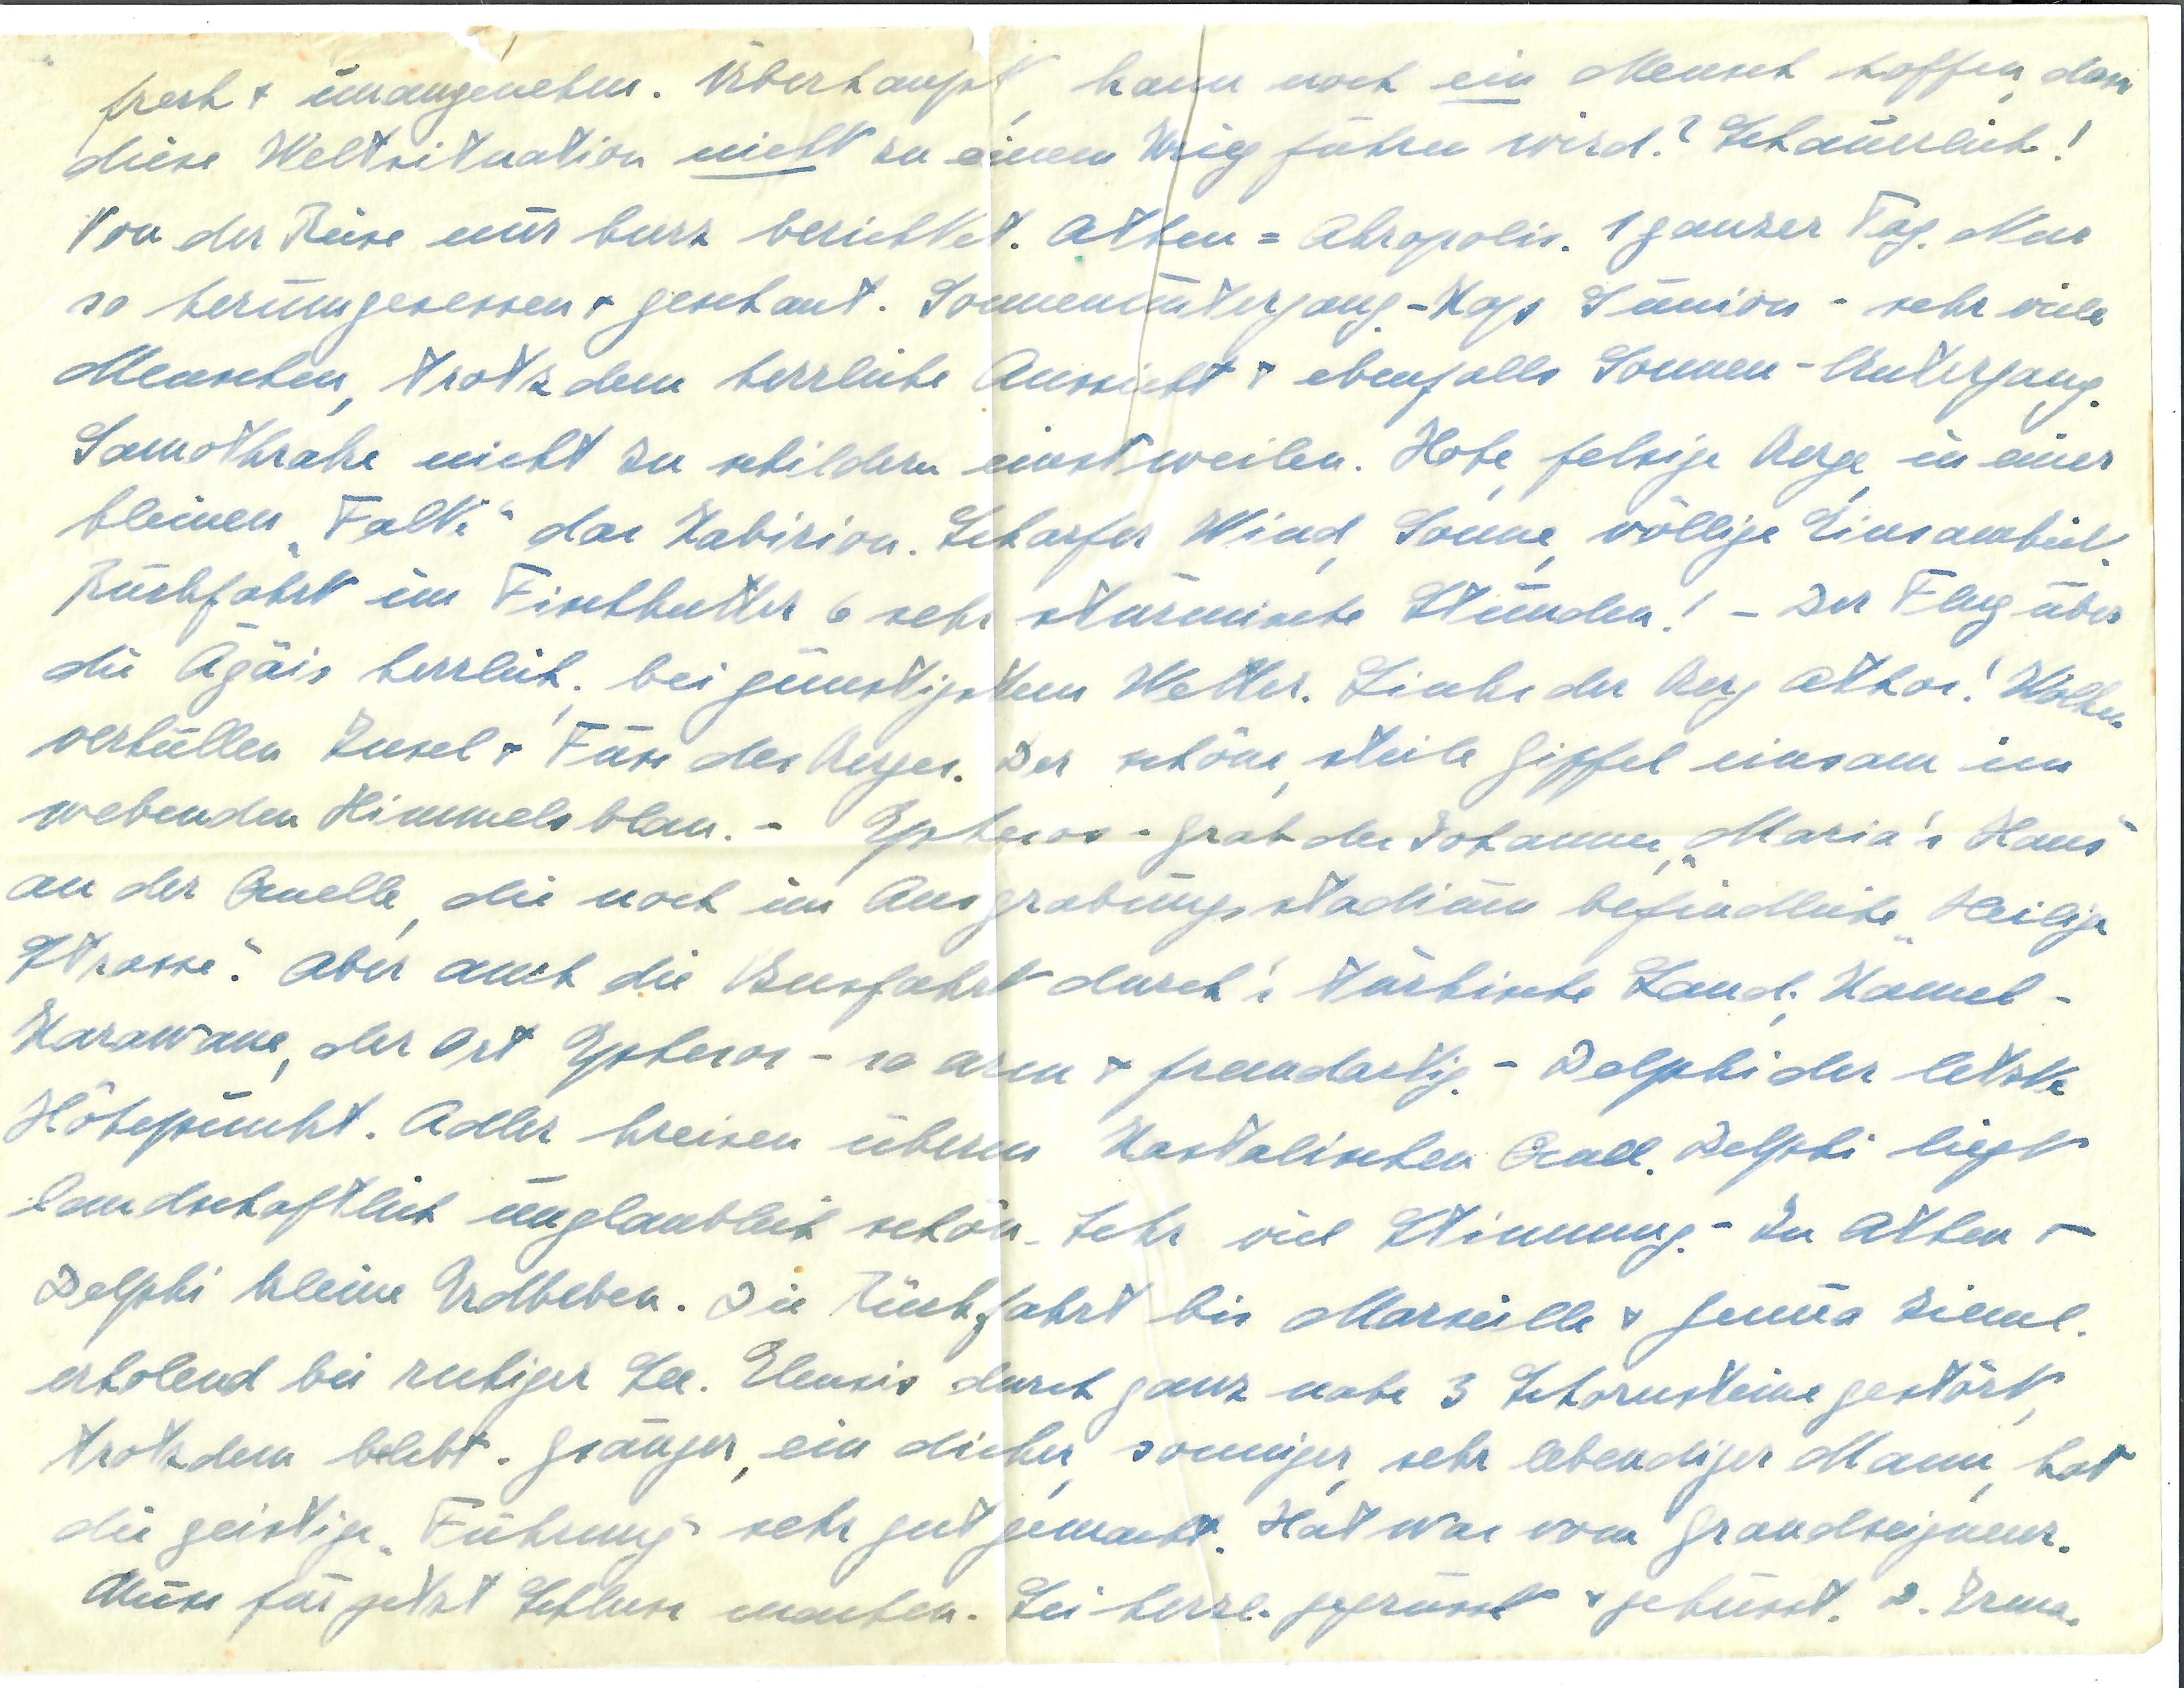 frech + unangenehm. Überhaupt, kann noch ein Mensch hoffen, dass
diese Weltsituation nicht zu einem Krieg führen wird? Schauerlich!
Von der Reise nur kurz berichtet. Athen = Akropolis. 1 ganzer Tag. Nur
so herumgesessen + geschaut. Sonnenuntergang - Kap Sunion - sehr viele
Menschen, trotzdem herrliche Aussicht + ebenfalls Sonnen-Untergang.
Samothrake nicht zu schildern einstweilen. Hohe, felsige Berge, in einer
kleinen „Falte“ das Kabirion. Scharfer Wind, Sonne, völlige Einsamkeit.
Rückfahrt im Fischkutter 6 sehr stürmische Stunden! - Der Flug über
die Ägäis herrlich, bei günstigstem Wetter. Links der Berg Athos! Wolken
verhüllen Insel + Fuss des Berges. Der schöne, steile Gipfel einsam im
webenden Himmelsblau. - Ephesos - Grab des Johannes, „Maria's Haus“
an der Quelle, die noch im Ausgrabungsstadium befindliche „Heilige
Strasse“. Aber auch die Busfahrt durch's türkische Land, Kamel-
Karawane, der Ort Ephesos - so arm + fremdartig. - Delphi der letzte
Höhepunkt. Adler kreisen überm Kastalischen Quell. Delphi liegt
landschaftlich unglaublich schön. Sehr viel Stimmung. - In Athen +
Delphi kleine Erdbeben. Die Rückfahrt bis Marseille + Genua zieml.
erholend bei ruhiger See. Eleusis durch ganz nahe 3 Schornsteine gestört,
trotzdem belebt. Gsänger, ein dicker, sonniger, sehr lebendiger Mann, hat
die geistige „Führung“ sehr gut gemacht. Hat was vom Grandseigneur.
Muss für jetzt Schluss machen. Sei herzl. gegrüsst + geküsst. D. Irma.